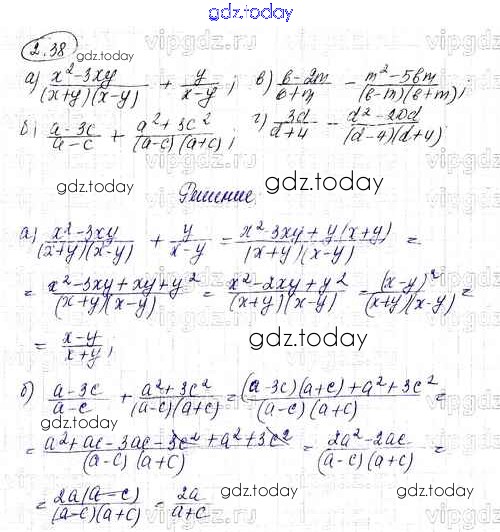 gdz.today
vipgdz.
2.38
gdz.today
а) (x²-3xy)/((x+y)(x-y)) + y/(x-y); в) (b-2m)/(b+m) - (m²-5bm)/((b-m)(b+m));
б) (a-3c)/(a-c) + (a²+3c²)/((a-c)(a+c)); г) 3d/(d+4) - (d²-20d)/((d-4)(d+4))
gdz.today
gdz.today
Решение.
а) (x²-3xy)/((x+y)(x-y)) + y/(x-y) = (x²-3xy+y(x+y))/((x+y)(x-y)) =
= (x²-3xy+xy+y²)/((x+y)(x-y)) = (x²-2xy+y²)/((x+y)(x-y)) = (x-y)²/((x+y)(x-y)) =
= (x-y)/(x+y);
gdz.today
б) (a-3c)/(a-c) + (a²+3c²)/((a-c)(a+c)) = ((a-3c)(a+c)+a²+3c²)/((a-c)(a+c)) =
= (a²+ac-3ac-3c²+a²+3c²)/((a-c)(a+c)) = (2a²-2ac)/((a-c)(a+c)) =
= 2a(a-c)/((a-c)(a+c)) = 2a/(a+c)
gdz.today
gdz.today